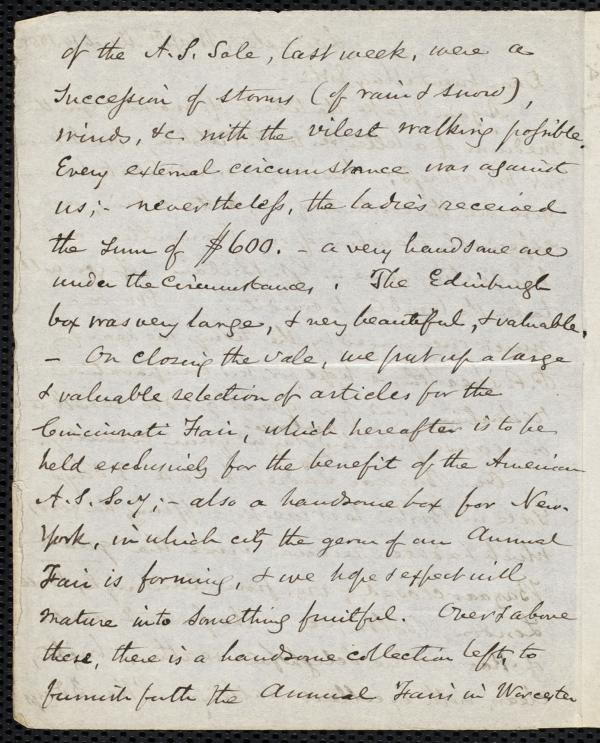 of the A.S. Sale, last week, were a
succession of storms (of rain & snow),
winds, &c. with the vilest walking possible.
Every external circumstance was against
us;- nevertheless, the ladies received
the sum of $600. - a very handsome one
under the circumstances. The Edinburgh
box was very large, & very beautiful, & valuable.
- On closing the sale, we put up a large
& valuable selection of articles for the
Cincinnati Fair, which hereafter is to be
held exclusively for the benefit of the American
A.S. Socy;- also a handsome box for New-
York, in which city the germ of an Annual
Fair is forming, & we hope & expect will
mature into something fruitful. Over & above
these, there is a handsome collection left, to
furnish forth the Annual Fairs in Worcester